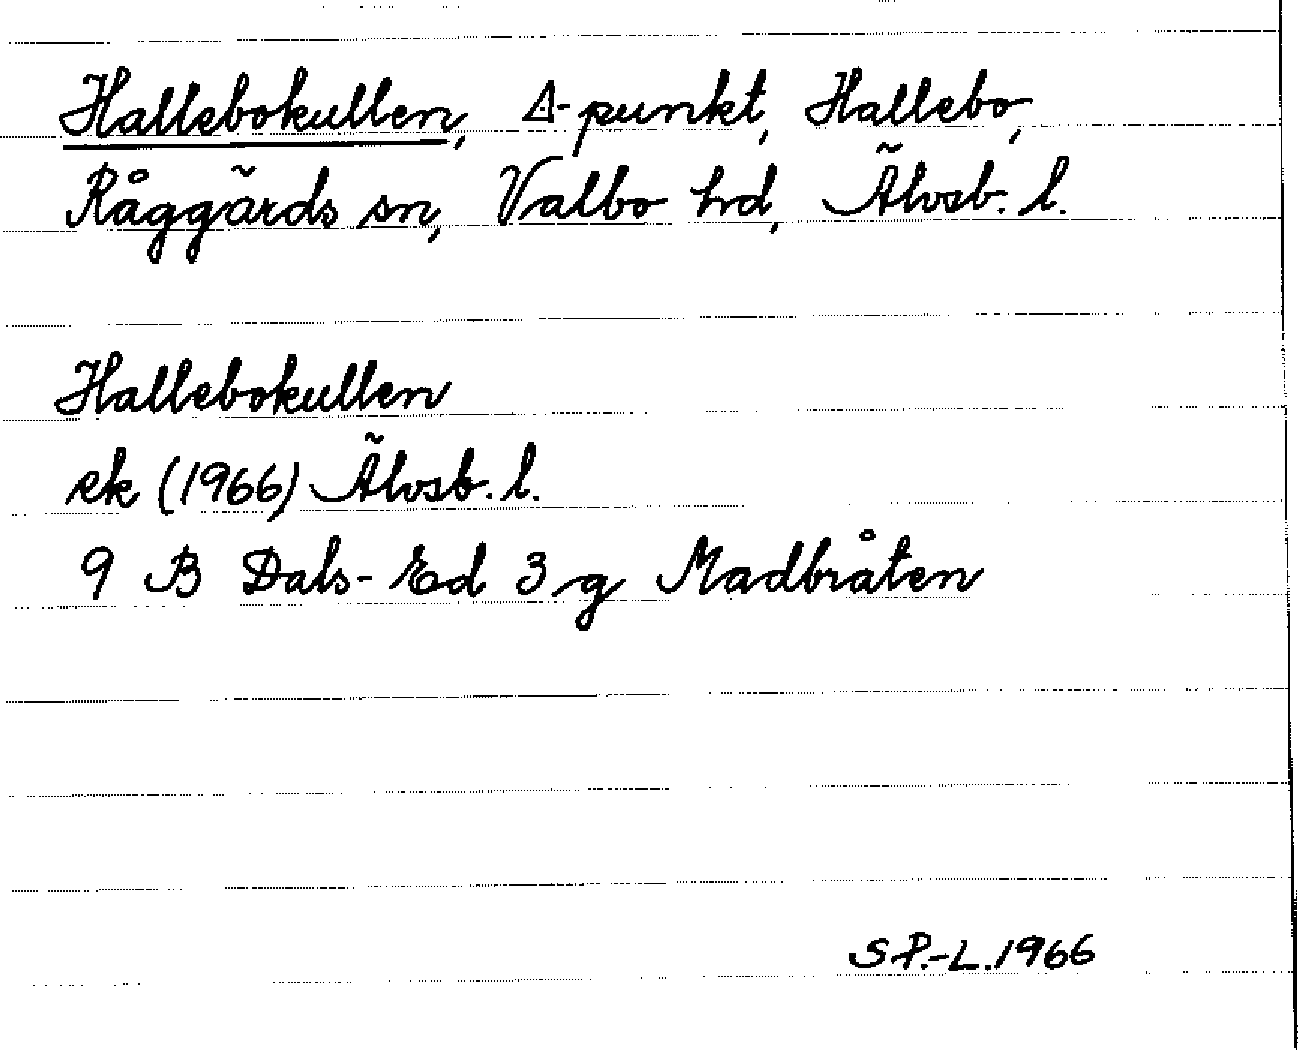 Hallebokullen, Δ-punkt, Hallebo,
Råggärds sn, Valbo hd, Älvsb. l.
Hallebokullen
ek (1966) Älvsb. l.
9 B Dals-Ed 3 g Madbråten
S P.-L. 1966